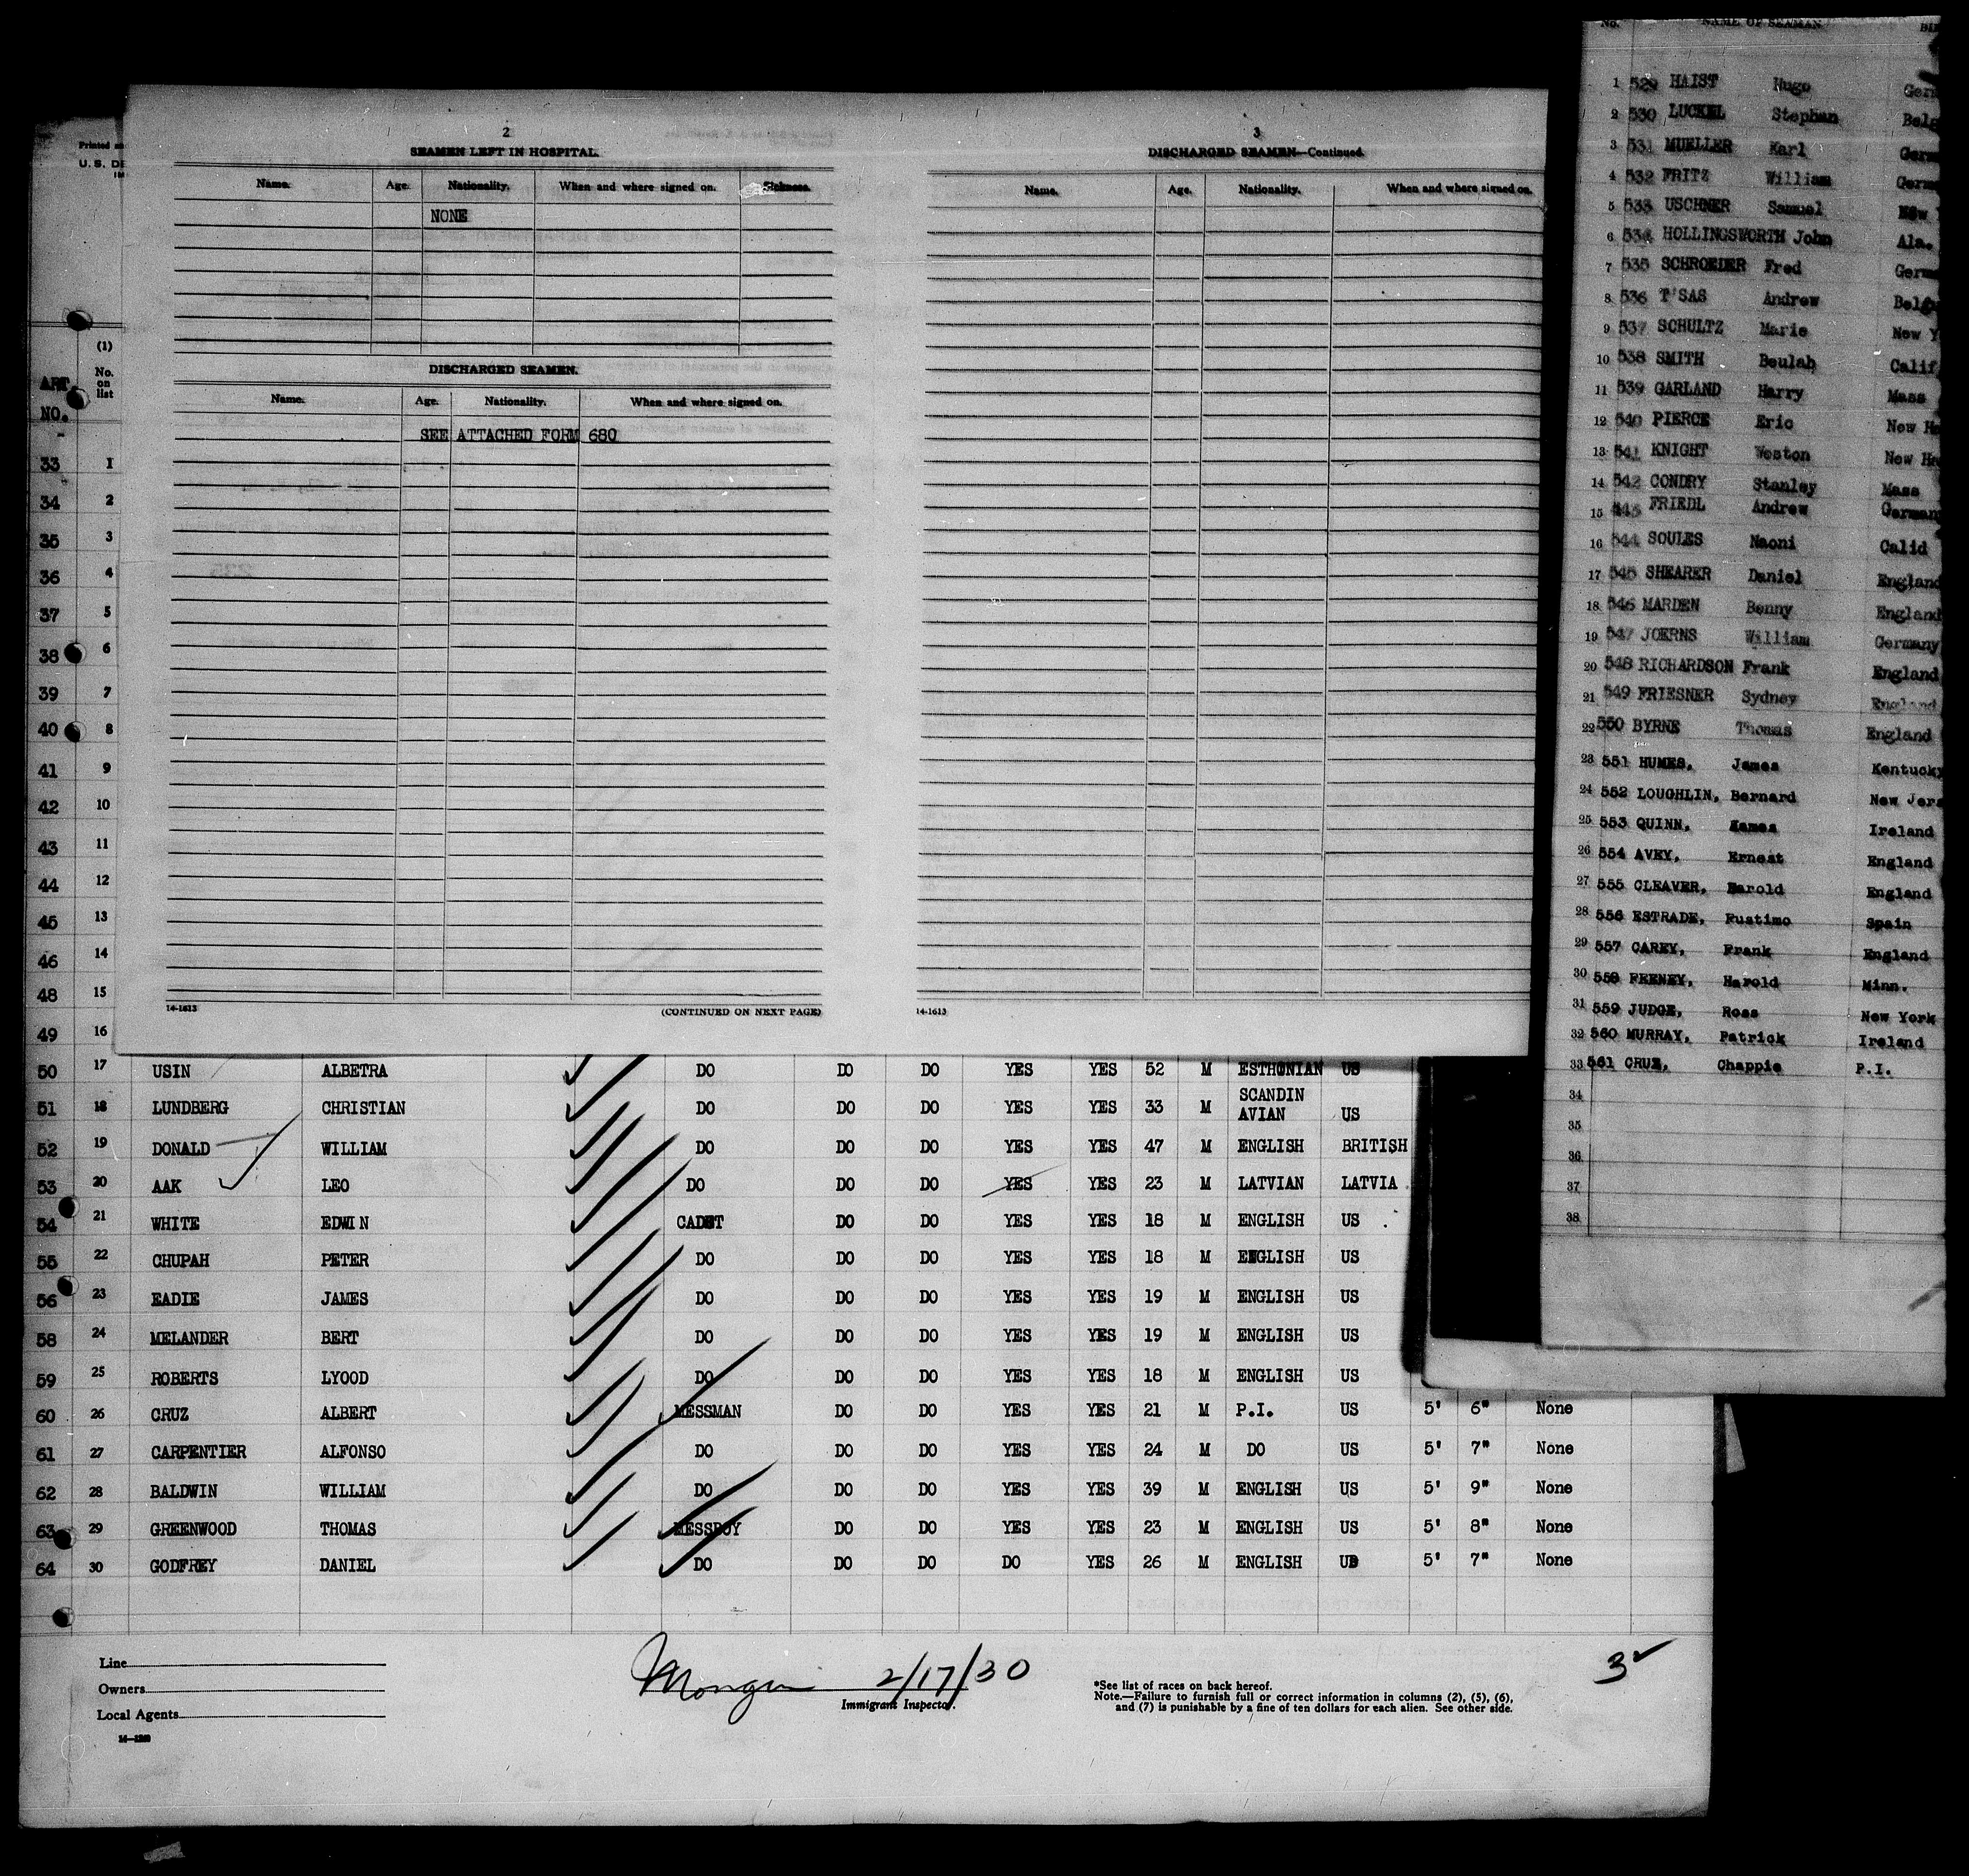 2
SEAMEN LEFT IN HOSPITAL.
Name. Age. Nationality. When and where signed on. Sickness.
NONE
DISCHARGED SEAMEN.
Name. Age. Nationality. When and where signed on.
SEE ATTACHED FORM 680
14-1613 (CONTINUED ON NEXT PAGE)
3
DISCHARGED SEAMEN—Continued.
Name. Age. Nationality. When and where signed on.
14-1613
Printed
U. S. DE
(1)
ART. No. on list
NO.
33 1
34 2
35 3
36 4
37 5
38 6
39 7
40 8
41 9
42 10
43 11
44 12
45 13
46 14
48 15
49 16
50 17 USIN ALBETRA DO DO DO YES YES 52 M ESTHONIAN US
51 18 LUNDBERG CHRISTIAN DO DO DO YES YES 33 M SCANDIN AVIAN US
52 19 DONALD WILLIAM DO DO DO YES YES 47 M ENGLISH BRITISH
53 20 AAK LEO DO DO DO YES YES 23 M LATVIAN LATVIA
54 21 WHITE EDWIN CADET DO DO YES YES 18 M ENGLISH US
55 22 CHUPAH PETER DO DO DO YES YES 18 M ENGLISH US
56 23 EADIE JAMES DO DO DO YES YES 19 M ENGLISH US
58 24 MELANDER BERT DO DO DO YES YES 19 M ENGLISH US
59 25 ROBERTS LYOOD DO DO DO YES YES 18 M ENGLISH US
60 26 CRUZ ALBERT MESSMAN DO DO YES YES 21 M P.I. US 5' 6" None
61 27 CARPENTIER ALFONSO DO DO DO YES YES 24 M DO US 5' 7" None
62 28 BALDWIN WILLIAM DO DO DO YES YES 39 M ENGLISH US 5' 9" None
63 29 GREENWOOD THOMAS MESSBOY DO DO YES YES 23 M ENGLISH US 5' 8" None
64 30 GODFREY DANIEL DO DO DO DO YES 26 M ENGLISH 5' 7" None
Line
Owners
Local Agents
2/17/30
Immigrant Inspector.
*See list of races on back hereof.
Note.—Failure to furnish full or correct information in columns (2), (5), (6),
and (7) is punishable by a fine of ten dollars for each alien. See other side.
3
No. NAME OF SEAMAN
1 529 HAIST Hugo Ger
2 530 LUCKEL Stephan Belg
3 531 MUELLER Karl Germ
4 532 FRITZ William Germ
5 533 USCHNER Samuel New
6 534 HOLLINGSWORTH John Ala.
7 535 SCHROEDER Fred Germ
8 536 T'SAS Andrew Belg
9 537 SCHULTZ Marie New Y
10 538 SMITH Beulah Calif
11 539 GARLAND Harry Mass
12 540 PIERCE Eric New H
13 541 KNIGHT Weston New H
14 542 CONDRY Stanley Mass
15 443 FRIEDL Andrew German
16 544 SOULES Naoni Calid
17 545 SHEARER Daniel England
18 546 MARDEN Benny England
19 547 JOERNS William Germany
20 548 RICHARDSON Frank England
21 549 FRIESNER Sydney England
22 550 BYRNE Thomas England
23 551 HUMES, James Kentucky
24 552 LOUGHLIN, Bernard New Jers
25 553 QUINN, James Ireland
26 554 AVEY, Ernest England
27 555 CLEAVER, Harold England
28 556 ESTRADE, Fustimo Spain
29 557 CAREY, Frank England
30 558 FEENEY, Harold Minn.
31 559 JUDGE, Ross New York
32 560 MURRAY, Patrick Ireland
33 561 CRUZ, Chappie P.I.
34
35
36
37
38